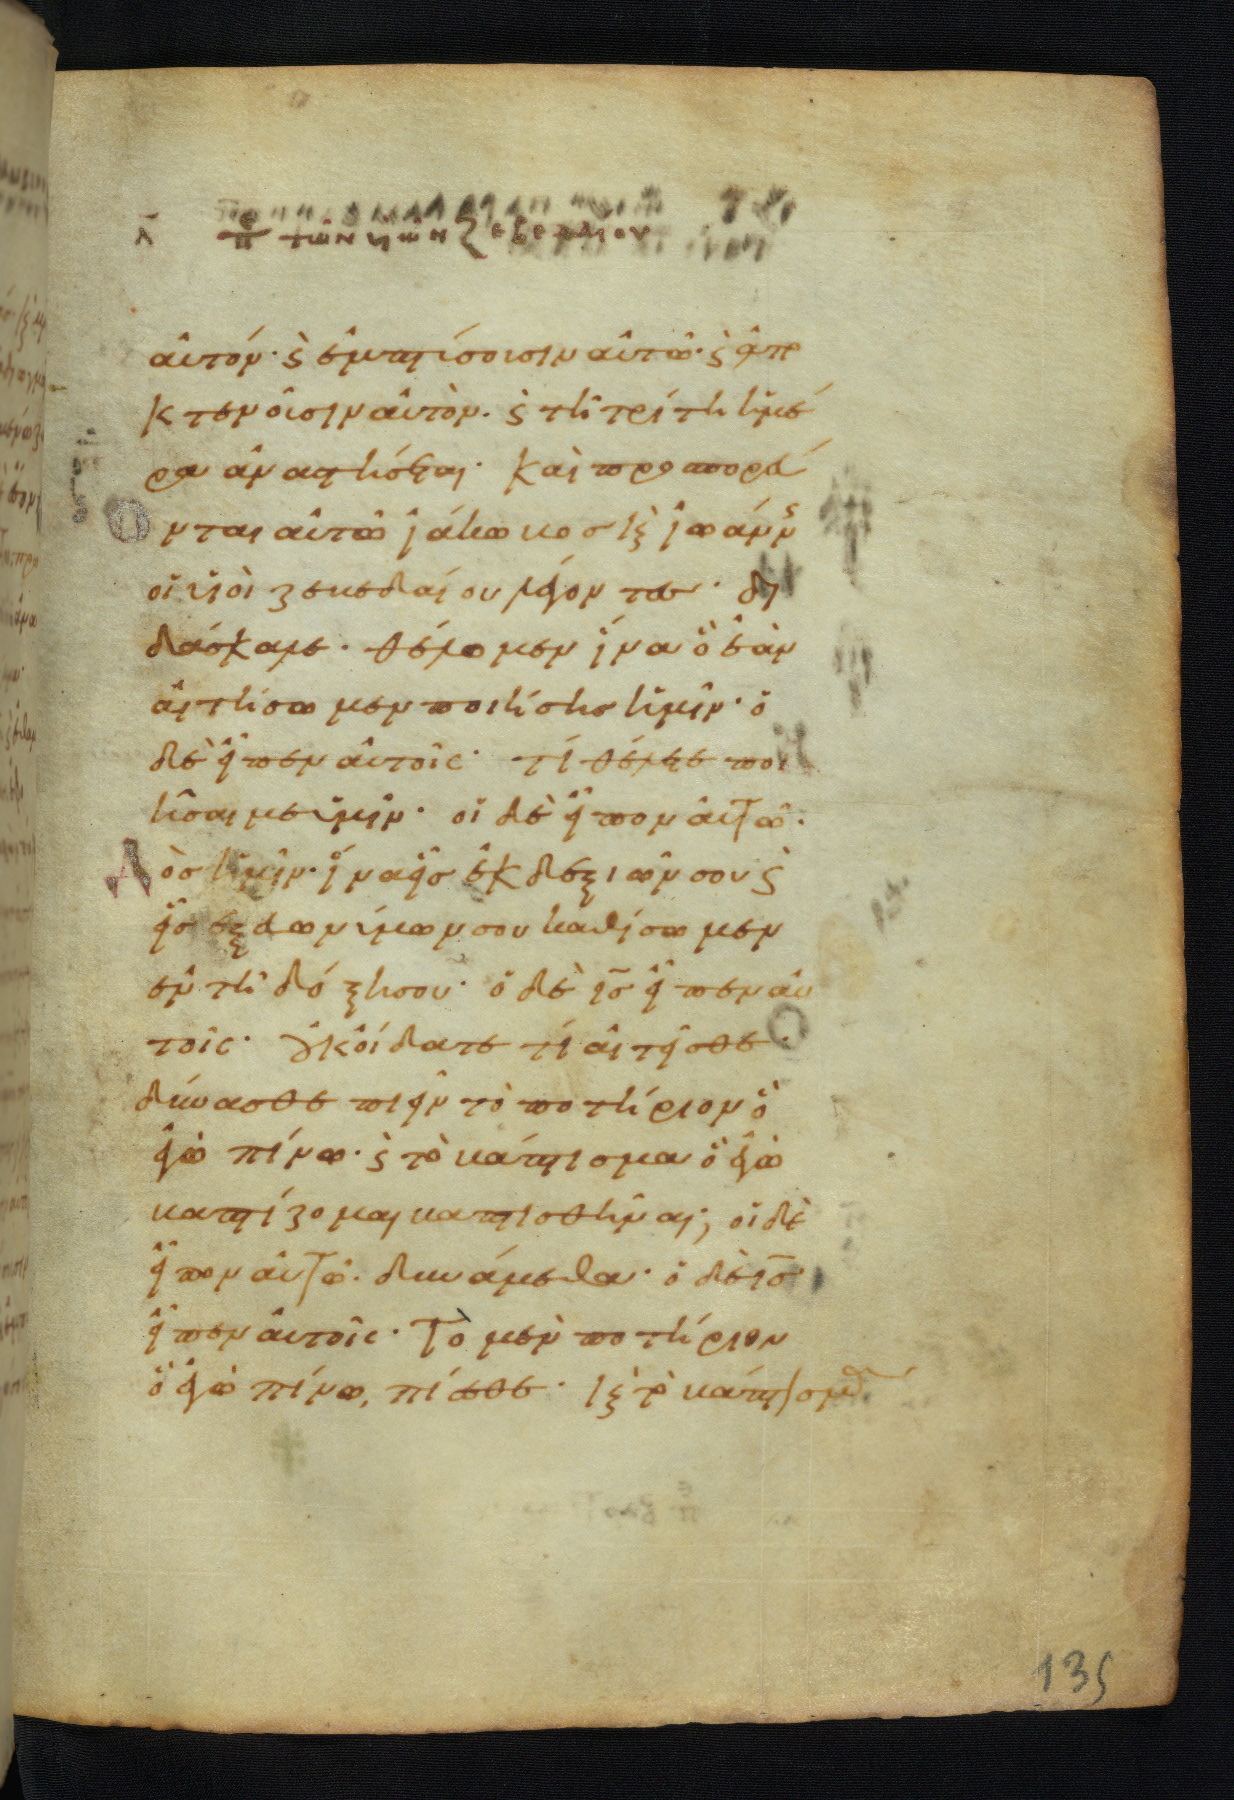 λ̄ πε τῶν υἱῶν Ζεβεδαίου
αὐτόν· ϗ ἐμπτύσουσιν αὐτῶ· ϗ ἀπο
κτενοῦσιν αὐτὸν· ϗ τῆ τρίτη ἡμέ
ρα ἀναστήσεται· Καὶ προσπορεύ
ονται αὐτῶ ἰάκωβος ϗ ἰωάννης
οἱ υἱοὶ ζεβεδαίου λέγοντες· δι
δάσκαλε· θέλομεν ἵνα ὃ ἐὰν
αἰτήσωμεν ποιήσης ἡμῖν· ὁ
δὲ εἶπεν αὐτοῖς· τί θέλετε ποι
ῆσαι με ὑμῖν· οἱ δὲ εἶπον αὐτῶ·
Δὸς ἡμῖν· ἵνα εἷς ἐκ δεξιῶν σου ϗ
εἷς ἐξ εὐωνύμων σου καθίσωμεν
ἐν τῆ δόξη σου· ὁ δὲ ι̅ς̅ εἶπεν αὐ
τοῖς· οὐκ οἴδατε τί αἰτεῖσθε·
δύνασθε πιεῖν τὸ ποτήριον ὃ
ἐγὼ πίνω· ϗ τὸ βάπτισμα ὃ ἐγὼ
βαπτίζομαι βαπτισθῆναι; οἱ δὲ
εἶπον αὐτῶ· δυνάμεθα· ὁ δὲ ι̅ς̅
εἶπεν αὐτοῖς· Τὸ μὲν ποτήριον
ὃ ἐγὼ πίνω, πίεσθε· ϗ τὸ βάπτισμα
135